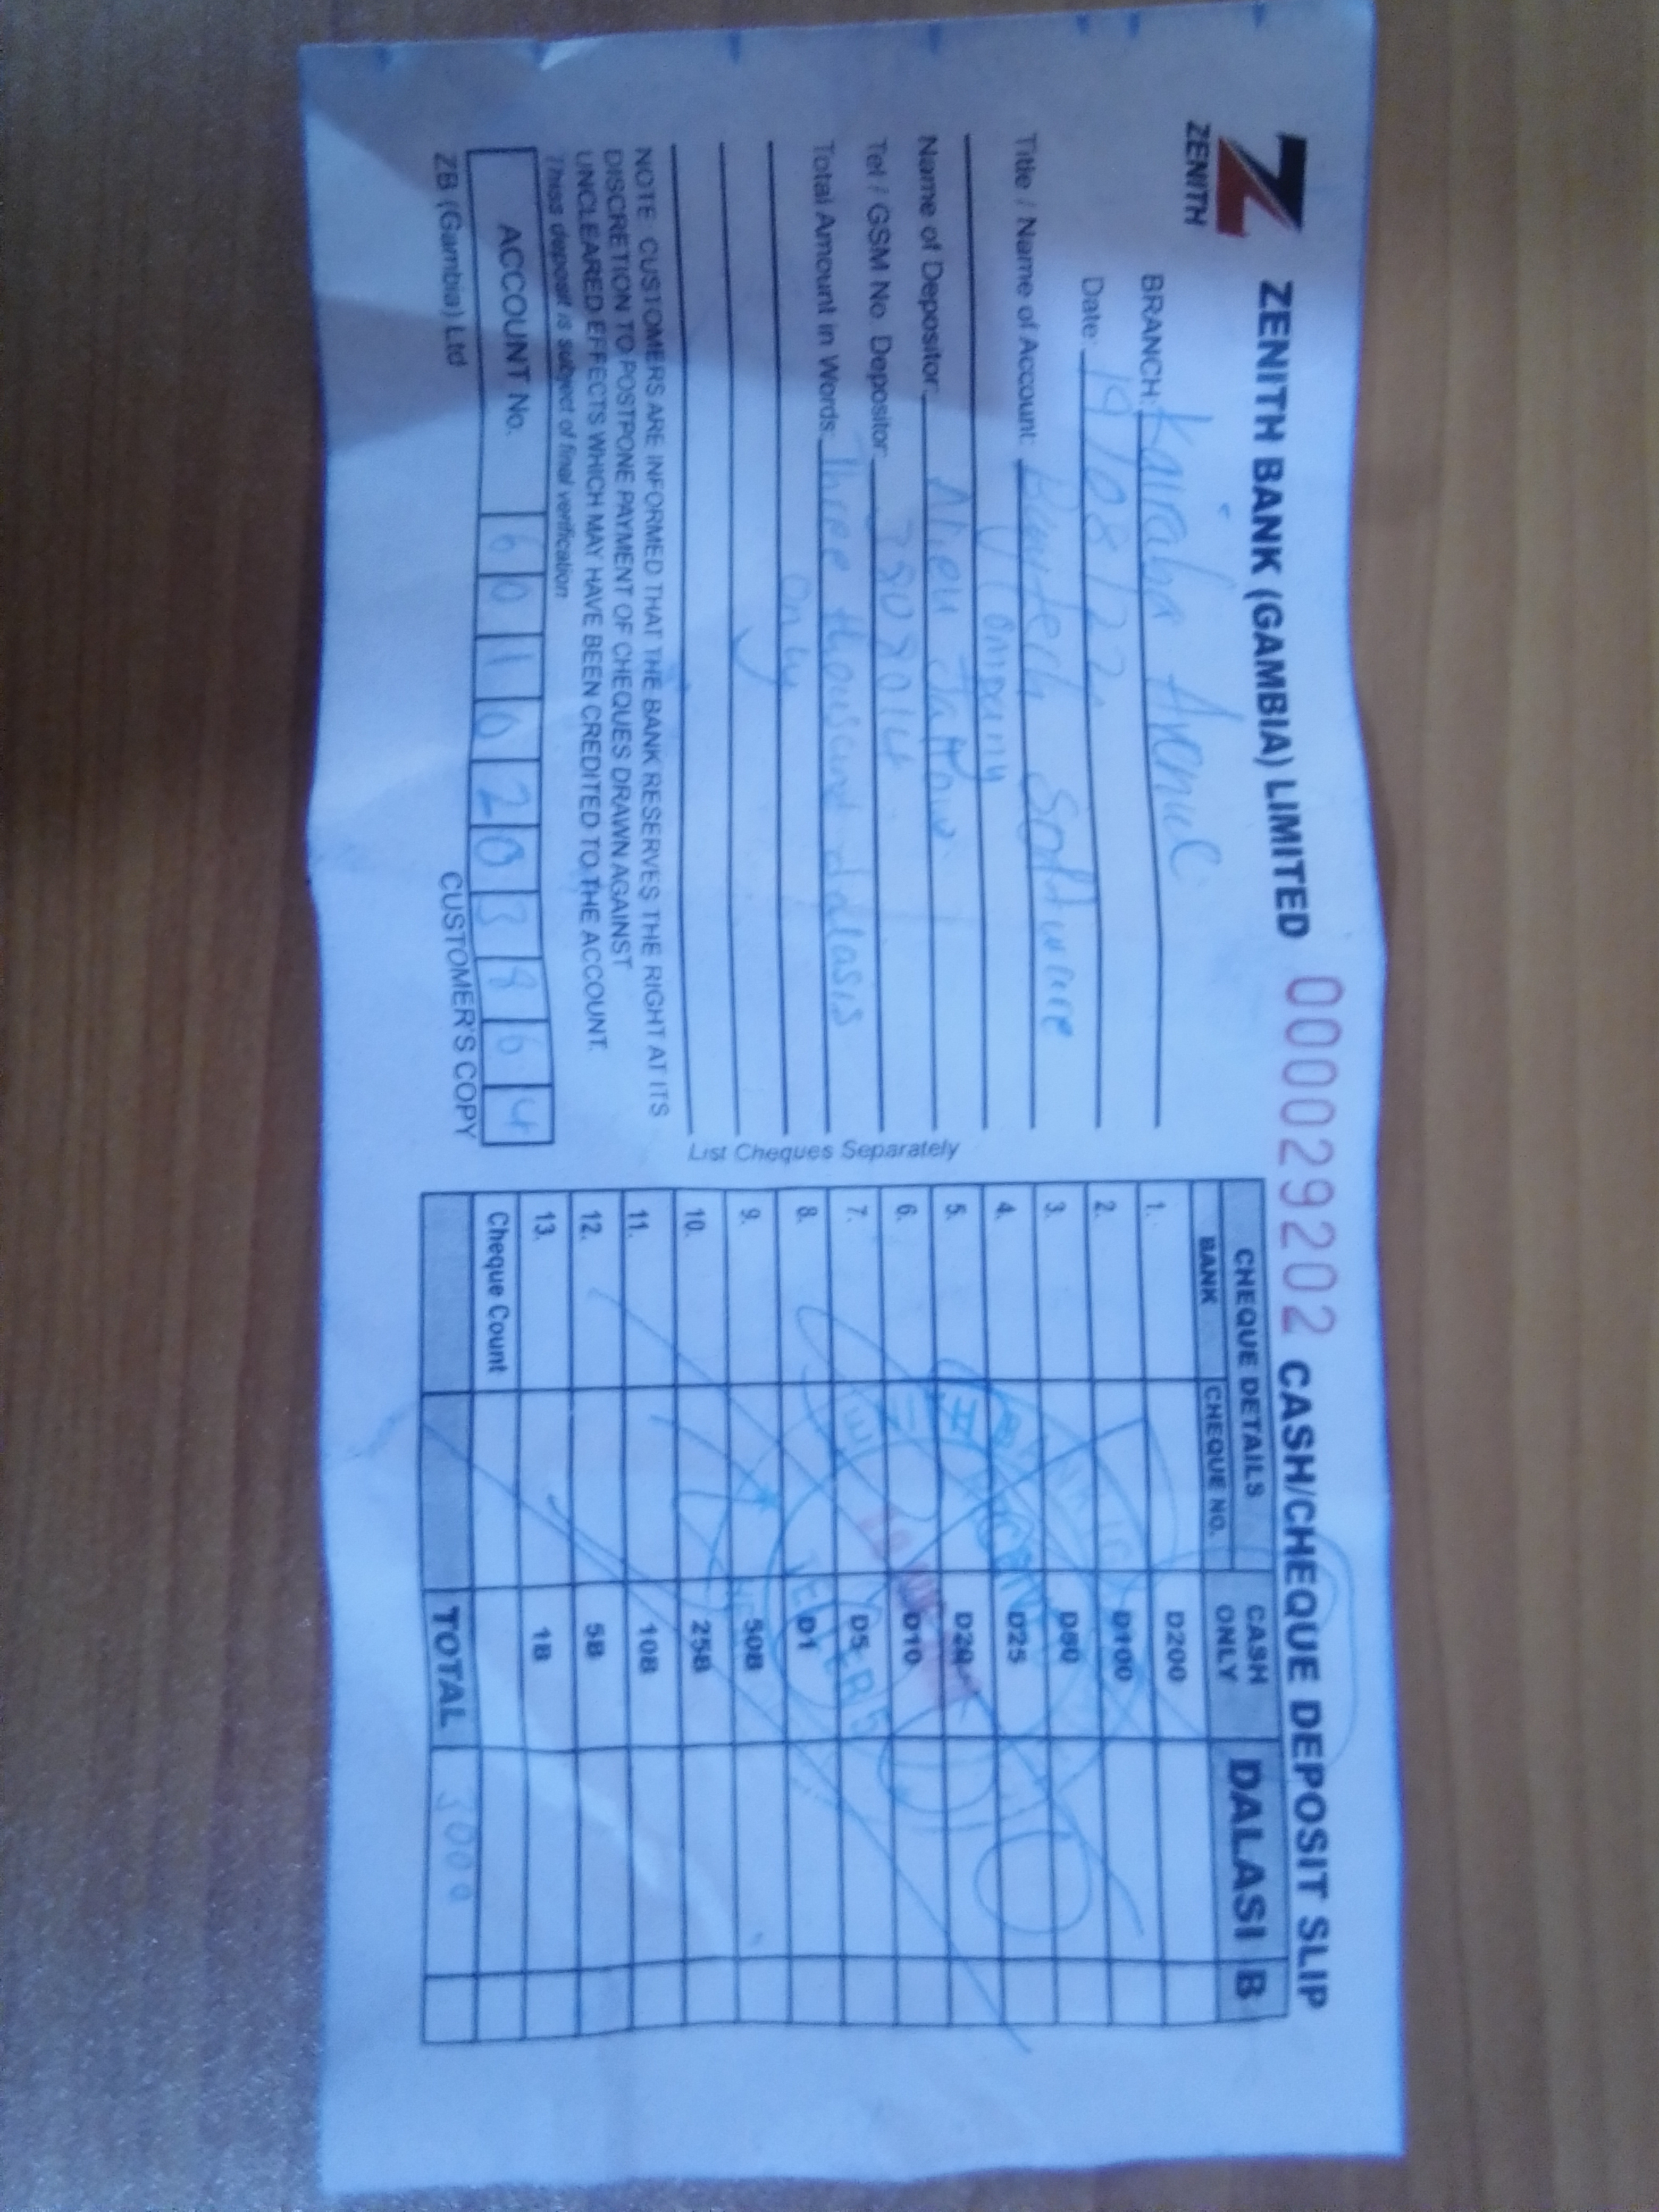 ZENITH
ZENITH BANK (GAMBIA) LIMITED 000029202 CASH/CHEQUE DEPOSIT SLIP
BRANCH: Kairaba Avenue
Date: 19/08/22
Title / Name of Account: Software
Company
Name of Depositor: Alieu Jallow
Tel / GSM No. Depositor:
Total Amount in Words: Three thousand dalasis
only
NOTE: CUSTOMERS ARE INFORMED THAT THE BANK RESERVES THE RIGHT AT ITS
DISCRETION TO POSTPONE PAYMENT OF CHEQUES DRAWN AGAINST
UNCLEARED EFFECTS WHICH MAY HAVE BEEN CREDITED TO THE ACCOUNT.
This deposit is subject of final verification
ACCOUNT No. 6010203864
ZB (Gambia) Ltd CUSTOMER'S COPY
List Cheques Separately
CHEQUE DETAILS CASH ONLY DALASI B
BANK CHEQUE NO.
1. D200
2. D100
3. D50
4. D25
5. D20
6. D10
7. D5
8. D1
9. 50B
10. 25B
11. 10B
12. 5B
13. 1B
Cheque Count
TOTAL 3000
TELLER 5